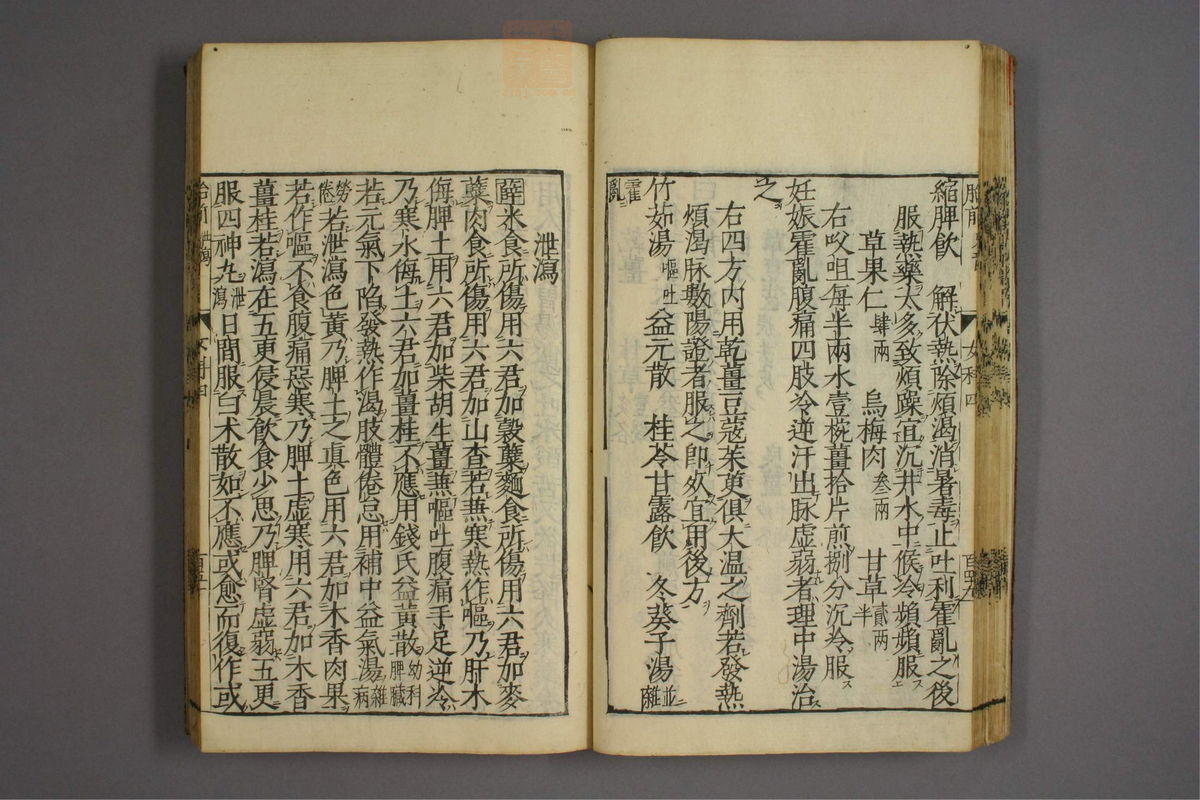 縮脾飲　解伏熱除煩渴消暑毒止吐利霍亂之後
服熱藥太多致煩躁宜沉井水中候冷頻頻服
草果仁 肆兩　烏梅肉 叁兩　甘草 貳兩半
右㕮咀每半兩水壹椀薑拾片煎捌分沉冷服
妊娠霍亂腹痛四肢冷逆汗出脉虛弱者理中湯治
之
右四方内用乾薑豆蔻茱萸俱大温之劑若發熱
煩渴脉數陽證者服之即效宜用後方
竹茹湯 嘔吐 益元散　桂苓甘露飲　冬葵子湯 並雜
霍亂
女科四
泄瀉
薛 米食所傷用六君加穀蘖麵食所傷用六君加麥
蘖肉食所傷用六君加山查若兼寒熱作嘔乃肝木
侮脾土用六君加柴胡生薑兼嘔吐腹痛手足逆冷
乃寒水侮土六君加薑桂不應用錢氏益黄散 幼科脾臟
若元氣下陷發熱作渴肢體倦怠用補中益氣湯 雜病
勞倦 若泄瀉色黄乃脾土之真色用六君加木香肉果
若作嘔不食腹痛惡寒乃脾土虛寒用六君加木香
薑桂若瀉在五更侵晨飲食少思乃脾腎虛弱五更
服四神丸 泄瀉 日間服白术散如不應或愈而復作或